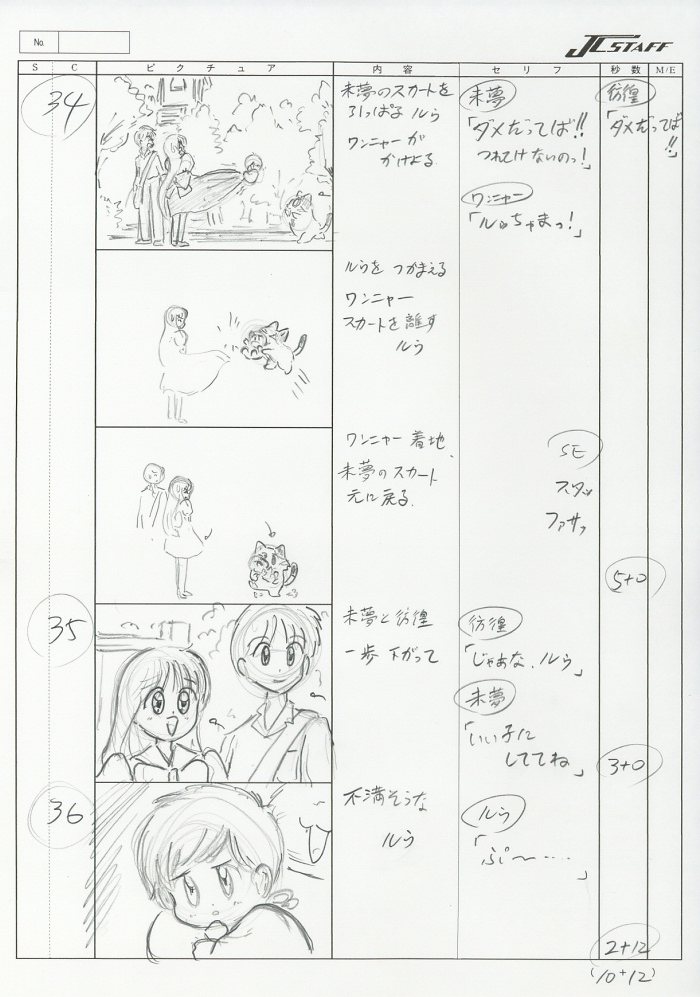 No.
JC STAFF
S C ピクチュア 内容 セリフ 秒数 M/E
34
未夢のスカートを
引っぱる ルゥ
ワンニャーが
かけよる
未夢
「ダメだってば!!
つれてけないのっ!」
ワンニャー
「ルゥちゃまっ!」
彷徨
「ダメだってば
!!」
ルゥを つかまえる
ワンニャー
スカートを離す
ルゥ
ワンニャー 着地、
未夢のスカート
元に戻る
SE
スタッ
ファサッ
5+0
35
未夢と彷徨
一歩下がって
彷徨
「じゃあな、ルゥ」
未夢
「いい子に
しててね」
3+0
36
不満そうな
ルゥ
ルゥ
「ぷ〜……
」
2+12
(10+12)